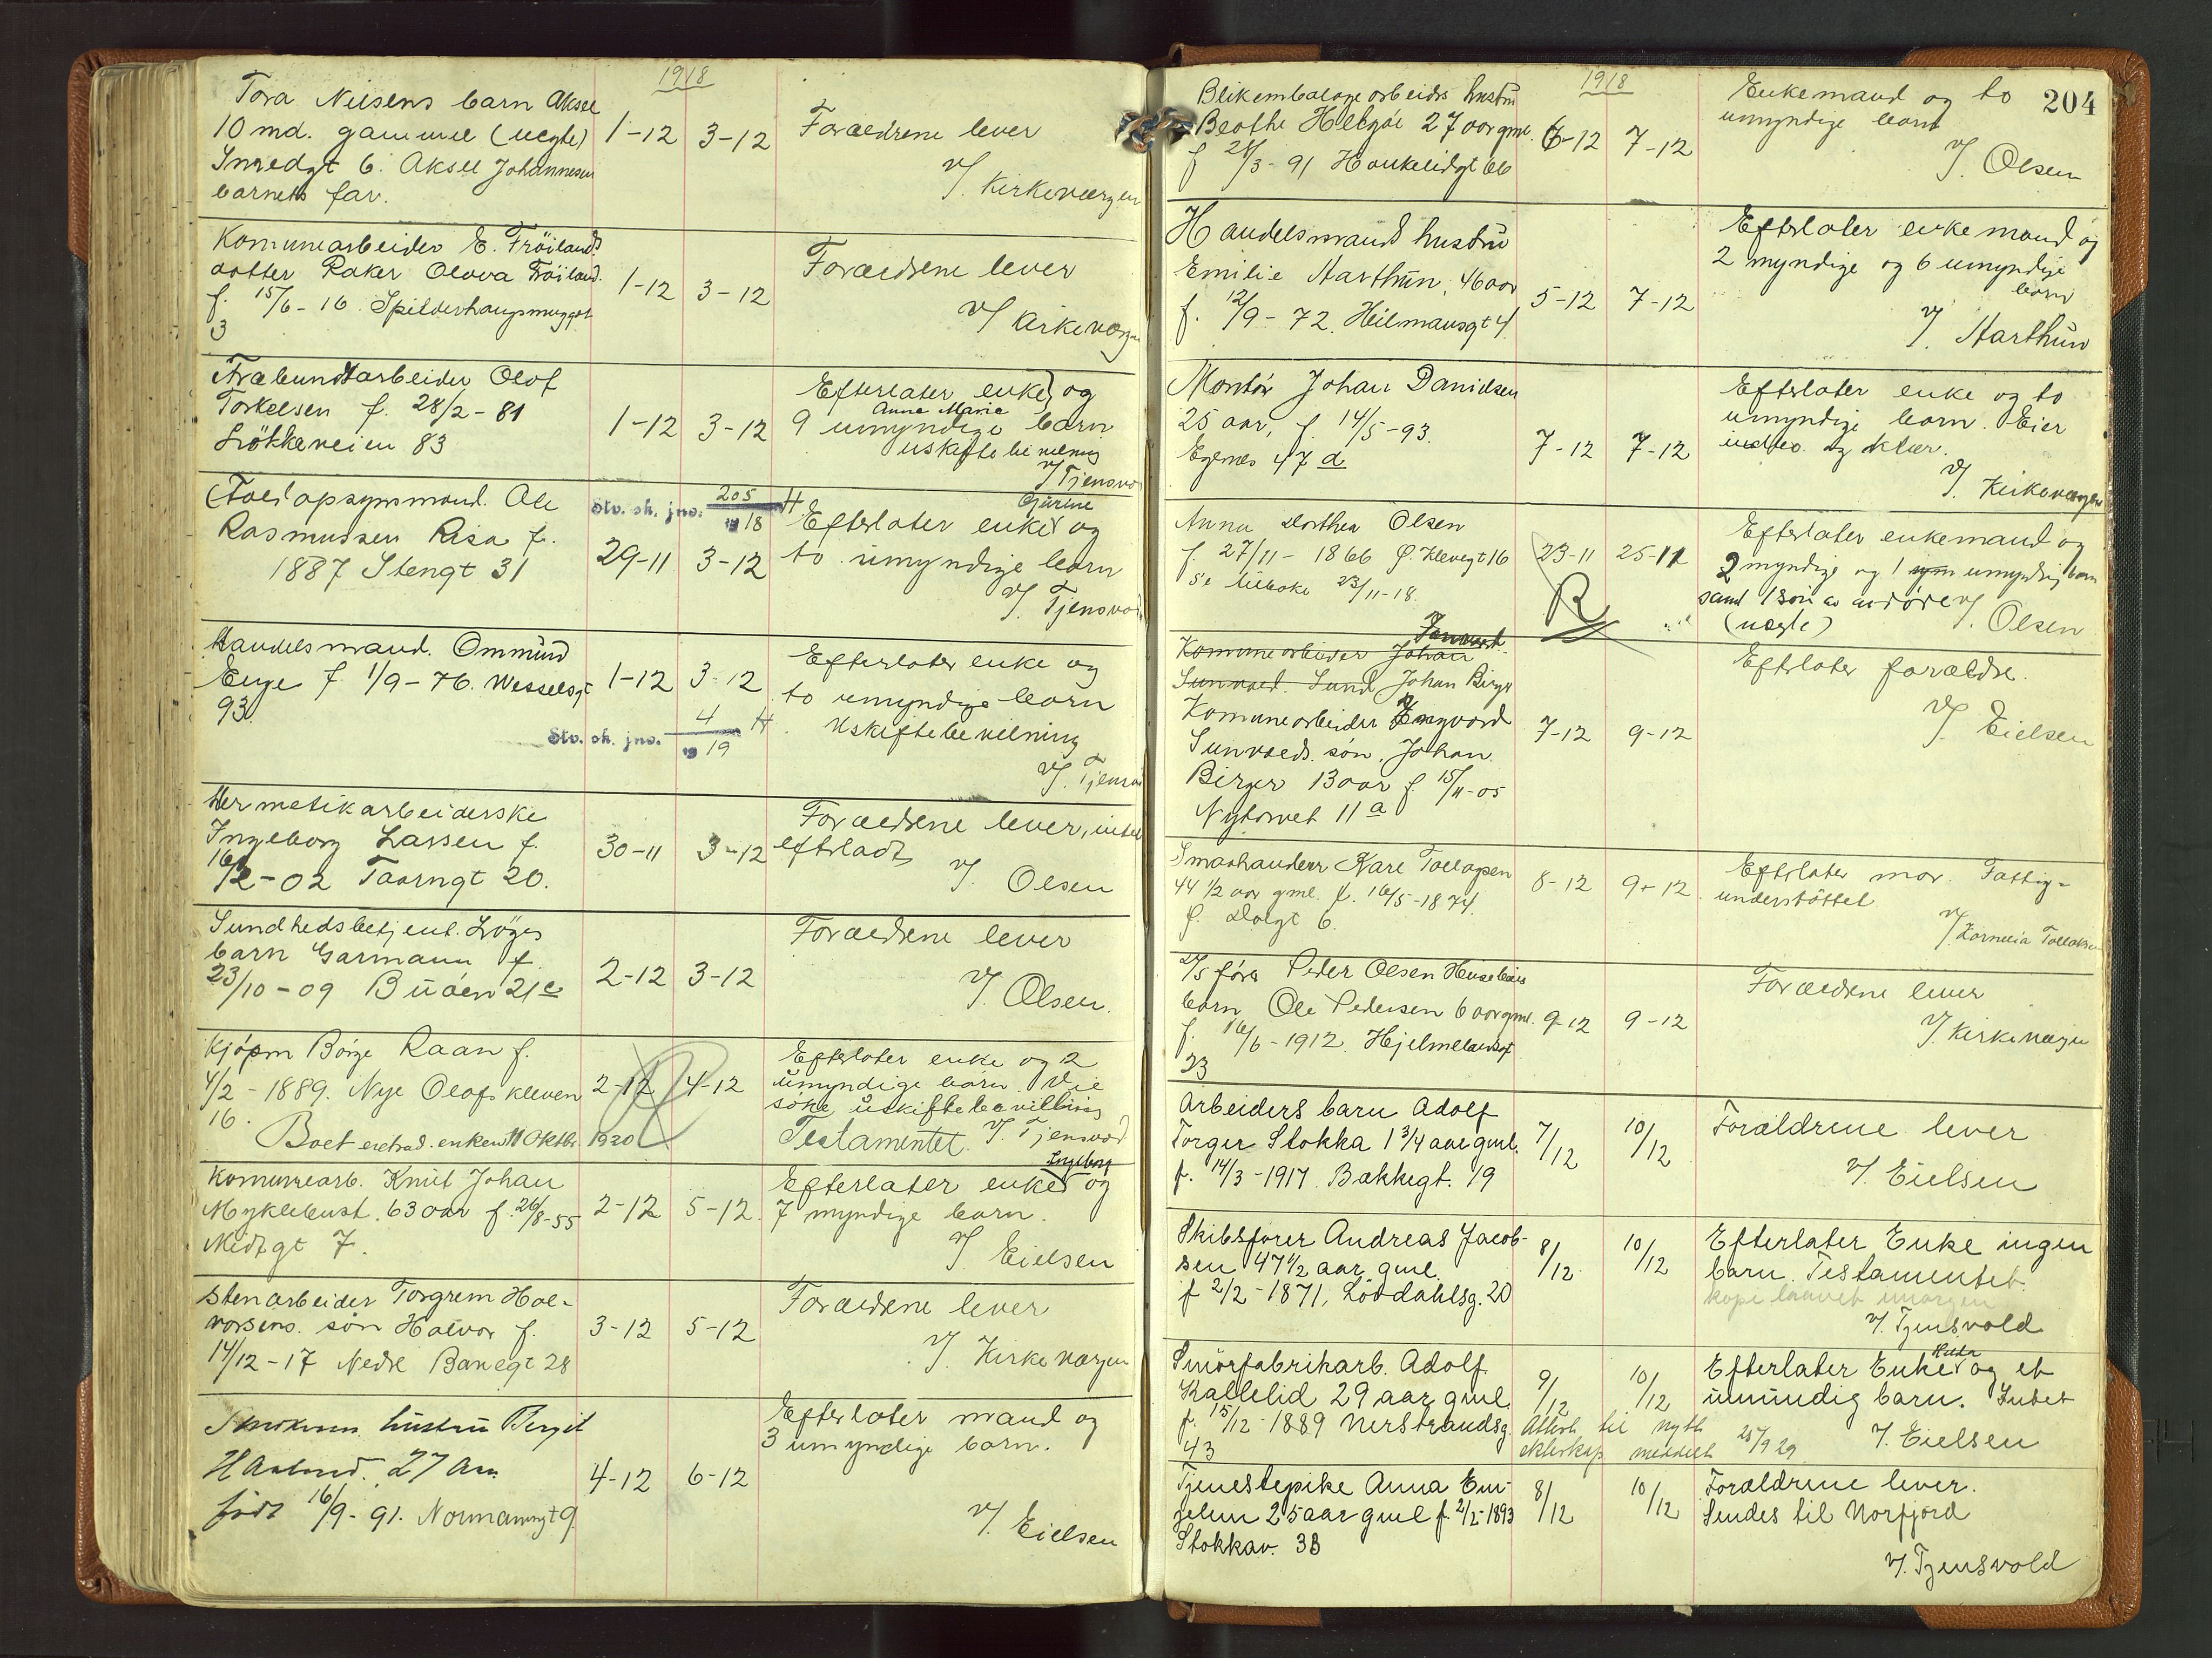 1918
Tora Nilsens barn Aksel
10 md. gammel (uegte)
6. Aksel Johannesen
barnets far.
1-12 3-12
Forældrene lever
V/ Kirkeværgen
Komunearbeider E. Fröilands
datter Olava Fröiland.
f. 15/6-16. Spilderhaugsmugget
3
1-12 3-12
Forældrene lever
V/ Kirkeværgen
arbeider Olaf
Torkelsen f. 28/2-81
Lökkeveien 83
1-12 3-12
Efterlater enke og
Anna Marie
9 umyndige barn
uskiftebevilning
V/ Tjensvold
Toldopsynsmand. Ole
Rasmussen Risa f.
1887 Stengt 31
Stv. sk. jno. 205/1918 H.
29-11 3-12
Gurine
Efterlater enke og
to umyndige barn
V/. Tjensvold
Handelsmand. Ommund
Enge f. 1/9-76. Wesselsgt
93.
1-12 3-12
Stv. sk. jno. 4/1919 H
Efterlater enke og
to umyndige barn
Uskiftebevilning
V/. Tjensvold
Hermetikarbeiderske
Ingeborg Larsen f.
16/2-02 Taarngt 20.
30-11 3-12
Forældrene lever, intet
efterladt
V/. Olsen
Sundhedsbetjent. Löges
barn Garmann f.
23/10-09 Buöen 21c
2-12 3-12
Forældrene lever
V/. Olsen.
Kjöpm Börge Raan f.
4/2-1889. Nye Olafskleven
16.
Boet extrad. enken 11 Oktbr. 1920
2-12 4-12
R
Efterlater enke og 2
umyndige barn. Vil
söke uskiftebevilling
Testamentet. V/. Tjensvold
Komunearb. Knut Johan
Myklebust. 63 aar f. 26/8-55
Nedregt 7.
2-12 5-12.
Ingeborg
Efterlater enke og
7 myndige barn.
V/ Eielsen
Stenarbeider Torgrem Hal-
vorsens. sön Halvor f.
14/12-17 Nedre Banegt 28
3-12 5-12
Forældrene lever
V/. Kirkeværgen
hustru Bergit
Haaland. 27 Aar
född 16/9-91. Normannsgt 9.
4-12 6-12
Efterlater mand og
3 umyndige barn.
V/. Eielsen
204
1918
Blikemballagearbeiders hustru
Berthe Helgöe 27 aar gml.
f 21/3-91 Haukeligt 66
6-12 7-12
Enkemand og to
umyndige barn
V/. Olsen
Handelsmands hustru
Emilie Aarthun, 46 aar
f. 12/9-72. Heilmansgt 4.
5-12 7-12
Efterlater enkemand og
2 myndige og 6 umyndige
barn
V/. Aarthun
Montör Johan Danielsen
25 aar, f. 14/5-93.
Egenes 47 d
7-12 7-12
Efterlater enke og to
umyndige barn. Eier
indbo. og klær.
V/. Kirkeværgen
Anna Dorthea Olsen
f. 27/11-1866 Ö. Klevegt 16
se tilbake 23/11-18.
23-11 25-11
R
Efterlater enkemand og
2 myndige og 1 umyndig barn
samt 1 sön av avdöde
(uegte) V/. Olsen
Komunearbeider Johan
Sunvoed. Sund Johan Birger
Komunearbeider Ingvard
Sunvoeds. sön. Johan
Birger 13 aar f 15/11-05
Nytorvet 11 a
7-12 9-12
Efterlater forældre.
V/. Eielsen
Smaahandler Kare Tollagsen
44 1/2 aar gml. f. 16/5-1874.
Ö. Dalgt 6.
8-12 9-12
Efterlater mor. Fattig-
understöttet
V/. Kornelia Tollaksen
D/S förer Peder Olsen Husebös
barn Ole Pedersen 6 aar gml.
f. 16/6-1912. Hjelmelandsgt
23
9-12 9-12
Forældrene lever
V/. Kirkeværgen
Arbeiders barn Adolf
Torger Stokka 1 3/4 aar gml.
f. 14/3-1917. Bakkegt. 19
7/12 10/12
Forældrene lever
V/. Eielsen
Skibsförer Andreas Jacob-
sen 47 1/2 aar gml.
f 2/2-1871, Lövdahlsg. 20
8/12 10/12
Efterlater Enke ingen
barn. Testamentet.
kopi lovet imorgen
V/. Tjensvold
Smörfabrikarb. Adolf
Kallelid 29 aar gml.
f. 15/12-1889 Nerstrandsg.
43
9/12 10/12
Attest til nytt
ekteskap meddelt 25/9 29
Hilda
Efterlater Enke og et
umundig barn. Intet
V/. Eielsen
Tjenestepike Anna Em-
25 aar gml f. 2/5-1893
Stokkav. 33
8/12 10/12
Forældrene lever.
Sendes til Norfjord
V/. Tjensvold